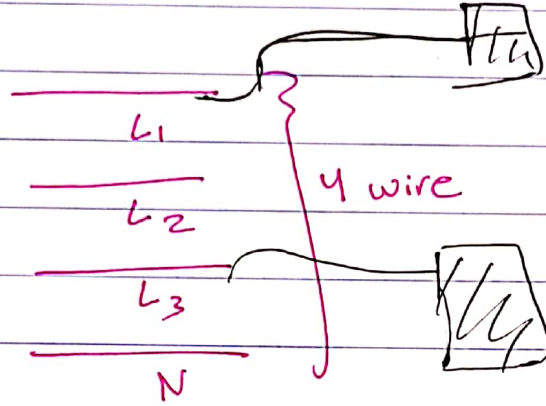 L1
L2
4 wire
L3
N